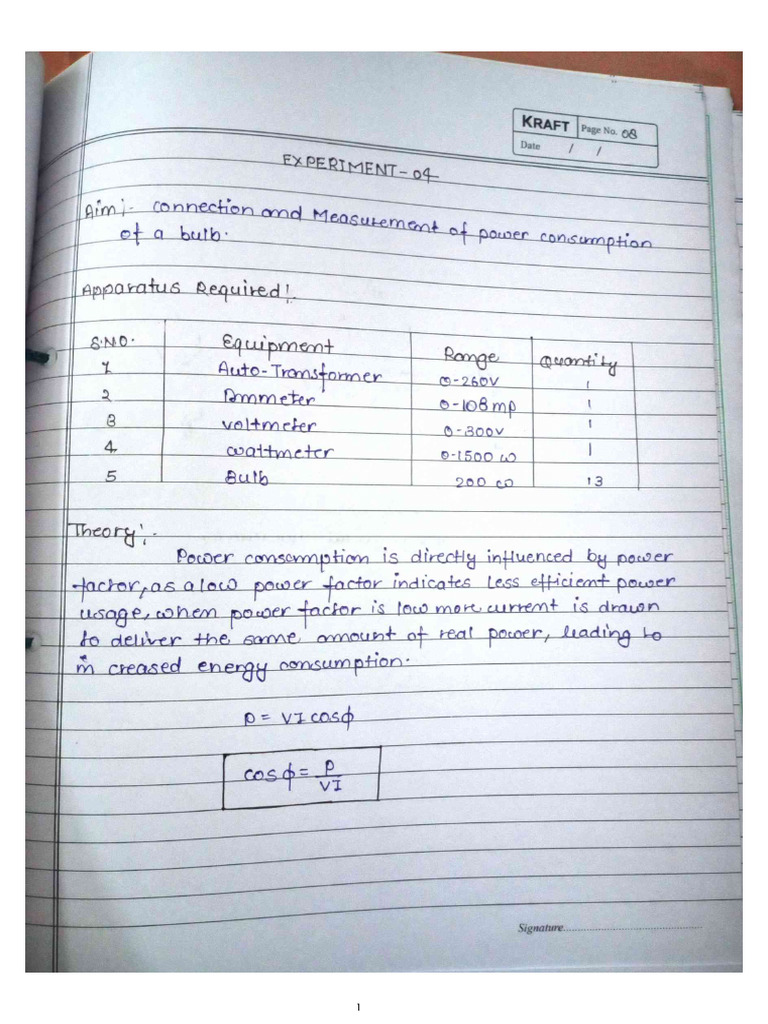 KRAFT Page No. 08
Date / /
EXPERIMENT-04
Aim:- Connection and Measurement of power consumption
of a bulb.
Apparatus Required:
S.NO. Equipment Range Quantity
1 Auto-Transformer 0-260V 1
2 Ammeter 0-108mp 1
3 voltmeter 0-300v 1
4 wattmeter 0-1500 w 1
5 Bulb 200 w 13
Theory:-
Power consumption is directly influenced by power
factor, as a low power factor indicates less efficient power
usage, when power factor is low more current is drawn
to deliver the same amount of real power, leading to
in creased energy consumption.
P = VI cosϕ
cosϕ = P/VI
Signature
1